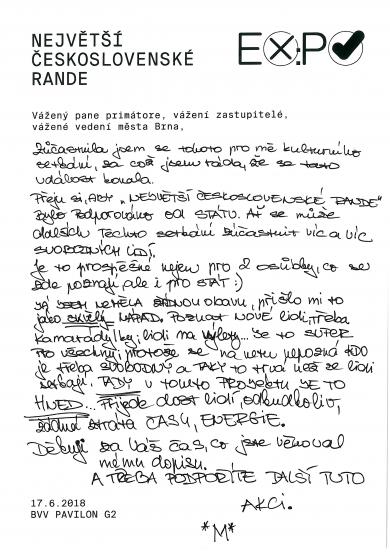 NEJVĚTŠÍ
ČESKOSLOVENSKÉ
RANDE
EXPO
Vážený pane primátore, vážení zastupitelé,
vážené vedení města Brna,
zúčastnila jsem se tohoto pro mě kulturního
setkání, za což jsem ráda, že se tato
událost konala.
Přeji si, aby „NEJVĚTŠÍ ČESKOSLOVENSKÉ RANDE"
bylo podporováno od STÁTU. Ať se může
dalších těchto setkání zúčastnit víc a víc
SVOBODNÝCH lidí.
Je to prospěšné nejen pro 2 osůbky, co se
zde poznají ale i pro STÁT :)
JÁ JSEM NEMĚLA ŽÁDNOU obavu, přišlo mi to
jako skvělý NÁPAD. Poznat NOVÉ lidi, třeba
kamarády, lidi na výlety... Je to SUPER
pro všechny, protože se na netu nepozná KDO
je třeba SVOBODNÝ a TAKY to trvá než se lidi
setkají. TADY v tomto PROJEKTU JE TO
HNED... Přijede dost lidí, odkudkoliv,
žádná ztráta ČASU, ENERGIE.
Děkuji za Váš čas, co jste věnoval
mému dopisu.
A TŘEBA PODPOŘÍTE DALŠÍ TUTO
AKCI.
*M*
17.6.2018
BVV PAVILON G2